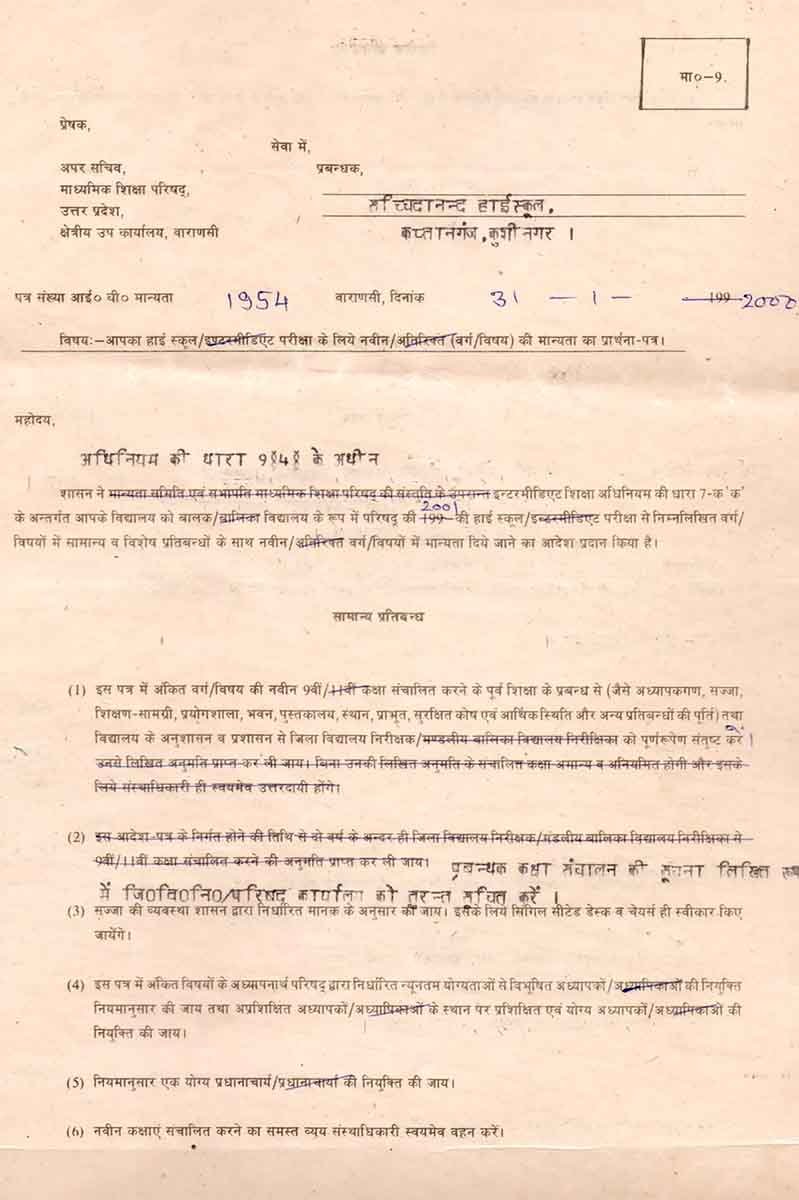 मा०-9.
प्रेषक,
सेवा में,
अपर सचिव,
प्रबन्धक,
माध्यमिक शिक्षा परिषद्,
सच्चिदानन्द हाईस्कूल,
उत्तर प्रदेश,
क्षेत्रीय उप कार्यालय, वाराणसी
कप्तानगंज,कुशीनगर ।
पत्र संख्या आई० वी० मान्यता 1954 वाराणसी, दिनांक 31 — 1 — 199 2000
विषय:—आपका हाई स्कूल/इण्टरमीडिएट परीक्षा के लिये नवीन/अतिरिक्त (वर्ग/विषय) की मान्यता का प्रार्थना-पत्र।
महोदय,
अधिनियम की धारा 9§4§ के अधीन
शासन ने मान्यता समिति एवं सभापति माध्यमिक शिक्षा परिषद् की संस्तुति के उपरान्त इन्टरमीडिएट शिक्षा अधिनियम की धारा 7-क 'क'
2001
के अन्तर्गत आपके विद्यालय को बालक/बालिका विद्यालय के रूप में परिषद् की 199 की हाई स्कूल/इन्टरमीडिएट परीक्षा से निम्नलिखित वर्ग/
विषयों में सामान्य व विशेष प्रतिबन्धों के साथ नवीन/अतिरिक्त वर्ग/विषयों में मान्यता दिये जाने का आदेश प्रदान किया है।
सामान्य प्रतिबन्ध
(1) इस पत्र में अंकित वर्ग/विषय की नवीन 9वीं/11वीं कक्षा संचालित करने के पूर्व शिक्षा के प्रबन्ध से (जैसे अध्यापकगण, सज्जा,
शिक्षण-सामग्री, प्रयोगशाला, भवन, पुस्तकालय, स्थान, प्राभूत, सुरक्षित कोष एवं आर्थिक स्थिति और अन्य प्रतिबन्धों की पूर्ति) तथा
विद्यालय के अनुशासन व प्रशासन से जिला विद्यालय निरीक्षक/मण्डलीय बालिका विद्यालय निरीक्षिका को पूर्णरूपेण संतुष्ट कर
उनसे लिखित अनुमति प्राप्त कर ली जाय। बिना उनकी लिखित अनुमति के संचालित कक्षा अमान्य व अनियमित होगी और इसके
लिये संस्थाधिकारी ही स्वयमेव उत्तरदायी होंगे।
(2) इस आदेश-पत्र के निर्गत होने की तिथि से दो वर्ष के अन्दर ही जिला विद्यालय निरीक्षक/मंडलीय बालिका विद्यालय निरीक्षिका से
9वीं/11वीं कक्षा संचालित करने की अनुमति प्राप्त कर ली जाय। प्रबन्धक कक्षा संचालन की सूचना लिखित रूप
में जि0वि0नि0/परिषद कार्यालय को तुरन्त सूचित करें ।
(3) सज्जा की व्यवस्था शासन द्वारा निर्धारित मानक के अनुसार की जाय। इसके लिये सिंगिल सीटेड डेस्क व चेयर्स ही स्वीकार किए
जायेंगे।
(4) इस पत्र में अंकित विषयों के अध्यापनार्थ परिषद् द्वारा निर्धारित न्यूनतम योग्यताओं से विभूषित अध्यापकों/अध्यापिकाओं की नियुक्ति
नियमानुसार की जाय तथा अप्रशिक्षित अध्यापकों/अध्यापिकाओं के स्थान पर प्रशिक्षित एवं योग्य अध्यापकों/अध्यापिकाओं की
नियुक्ति की जाय।
(5) नियमानुसार एक योग्य प्रधानाचार्य/प्रधानाचार्या की नियुक्ति की जाय।
(6) नवीन कक्षाएं संचालित करने का समस्त व्यय संस्थाधिकारी स्वयमेव वहन करें।